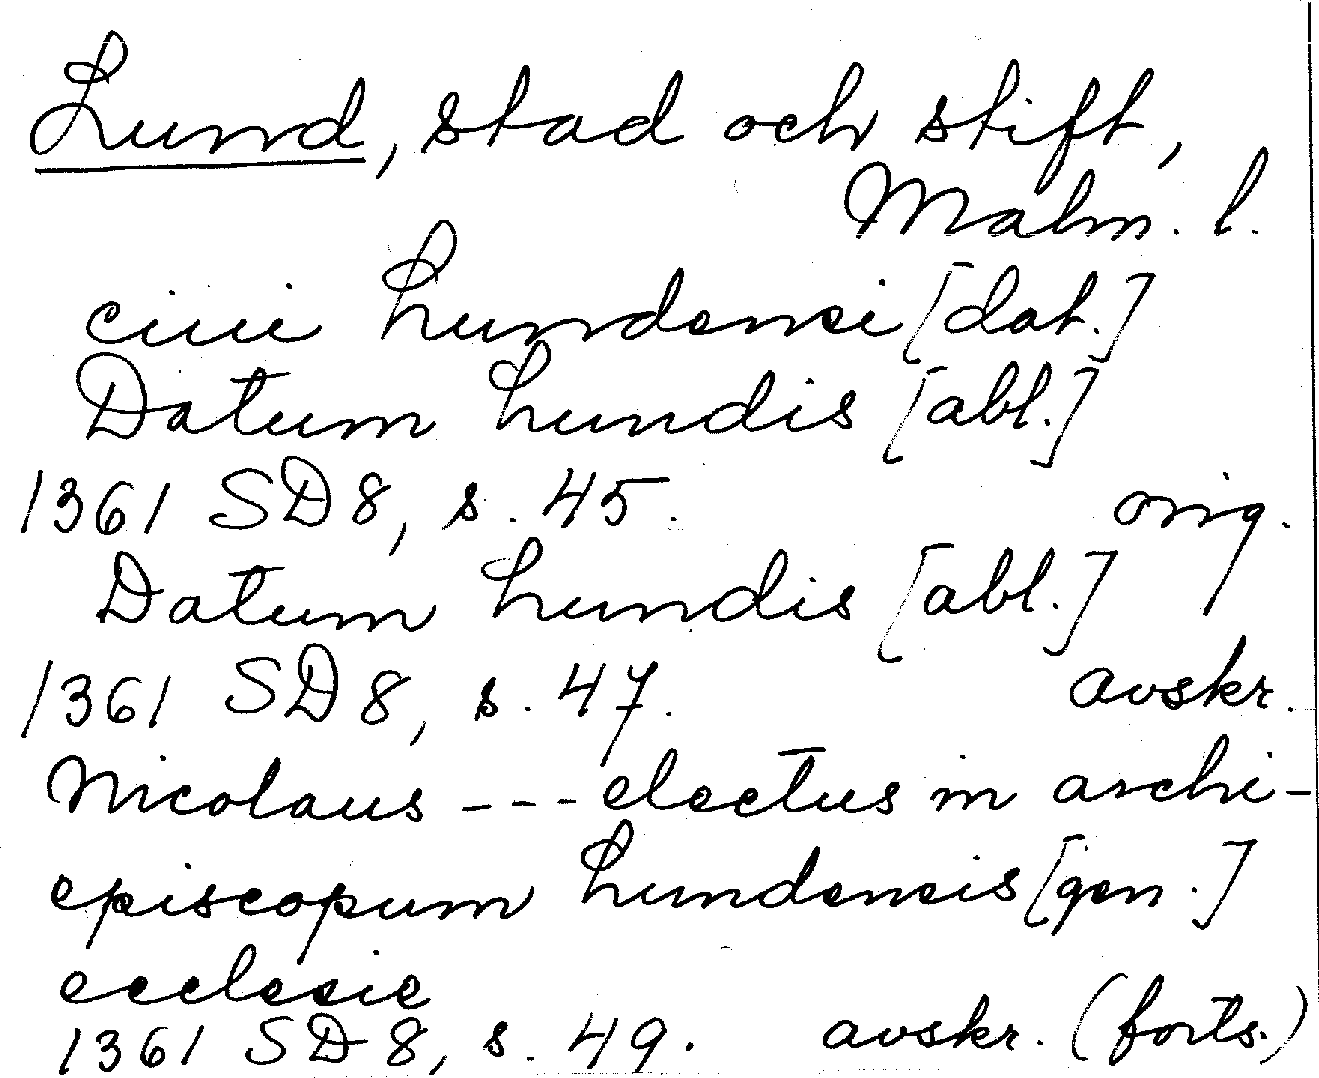 Lund, stad och stift,
Malm. l.
ciui Lundensi [dat.]
Datum Lundis [abl.]
1361 SD 8, s. 45. orig.
Datum Lundis [abl.]
1361 SD 8, s. 47. avskr.
Nicolaus --- electus in archi-
episcopum Lundensis [gen.]
ecclesie
1361 SD 8, s. 49. avskr. (forts.)